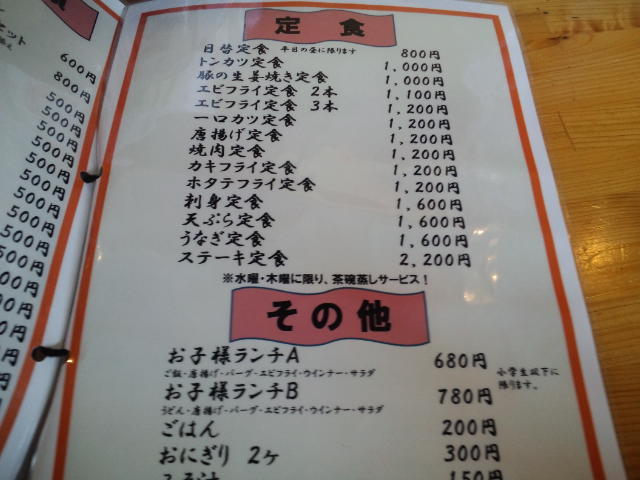 ット
600円
800円
500円
500円
500円
500円
500円
500円
500円
500円
500円
500円
500円
500円
定食
日替定食 平日の昼に限ります 800円
トンカツ定食 1,000円
豚の生姜焼き定食 1,000円
エビフライ定食 2本 1,100円
エビフライ定食 3本 1,200円
一口カツ定食 1,200円
唐揚げ定食 1,200円
焼肉定食 1,200円
カキフライ定食 1,200円
ホタテフライ定食 1,200円
刺身定食 1,600円
天ぷら定食 1,600円
うなぎ定食 1,600円
ステーキ定食 2,200円
※水曜・木曜に限り、茶碗蒸しサービス!
その他
お子様ランチA 680円
ご飯・唐揚げ・バーグ・エビフライ・ウインナー・サラダ
小学生以下に
限ります。
お子様ランチB 780円
うどん・唐揚げ・バーグ・エビフライ・ウインナー・サラダ
ごはん 200円
おにぎり 2ヶ 300円
みそ汁 150円